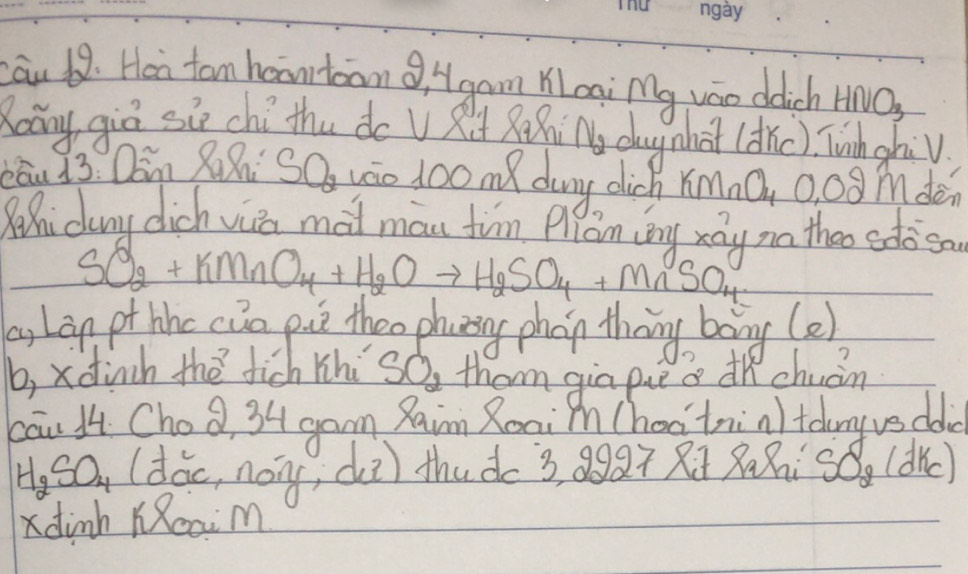 Thứ ngày
câu 12. Hoà tan hoàn toàn 2,4 gam Kloại Mg vào ddịch HNO3
loãng, giả sử chỉ thu dc V lít khí N2 duy nhất (đkc). Tính ghi V.
câu 13: Dẫn khí SO2 vào 100 ml dung dịch KMnO4 0,02 M đến
khi dung dịch vừa mất màu tím. Phản ứng xảy ra theo sđồ sau
SO2 + KMnO4 + H2O → H2SO4 + MnSO4.
a, Lập pt hhc của pứ theo phương pháp thăng bằng (e)
b, xđịnh thể tích khí SO2 tham gia pứ ở đk chuẩn
câu 14. Cho 2,34 gam kim loại M (hoá trị n) tdụng vs ddịch
H2SO4 (đặc, nóng, dư) thu dc 3,2227 lít khí SO2 (đkc)
xđịnh kloại M